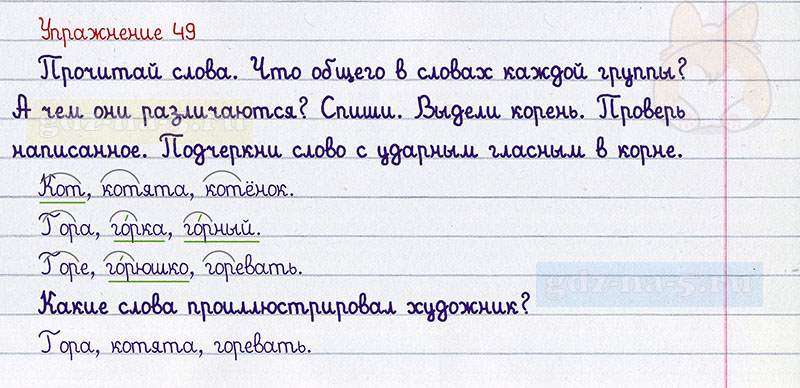 Упражнение 49
Прочитай слова. Что общего в словах каждой группы?
А чем они различаются? Спиши. Выдели корень. Проверь
написанное. Подчеркни слово с ударным гласным в корне.
Кот, котята, котёнок.
Гора, го́рка, го́рный.
Горе, го́рюшко, горевать.
Какие слова проиллюстрировал художник?
Гора, котята, горевать.
gdz-na-5.ru
gdz-na-5.ru